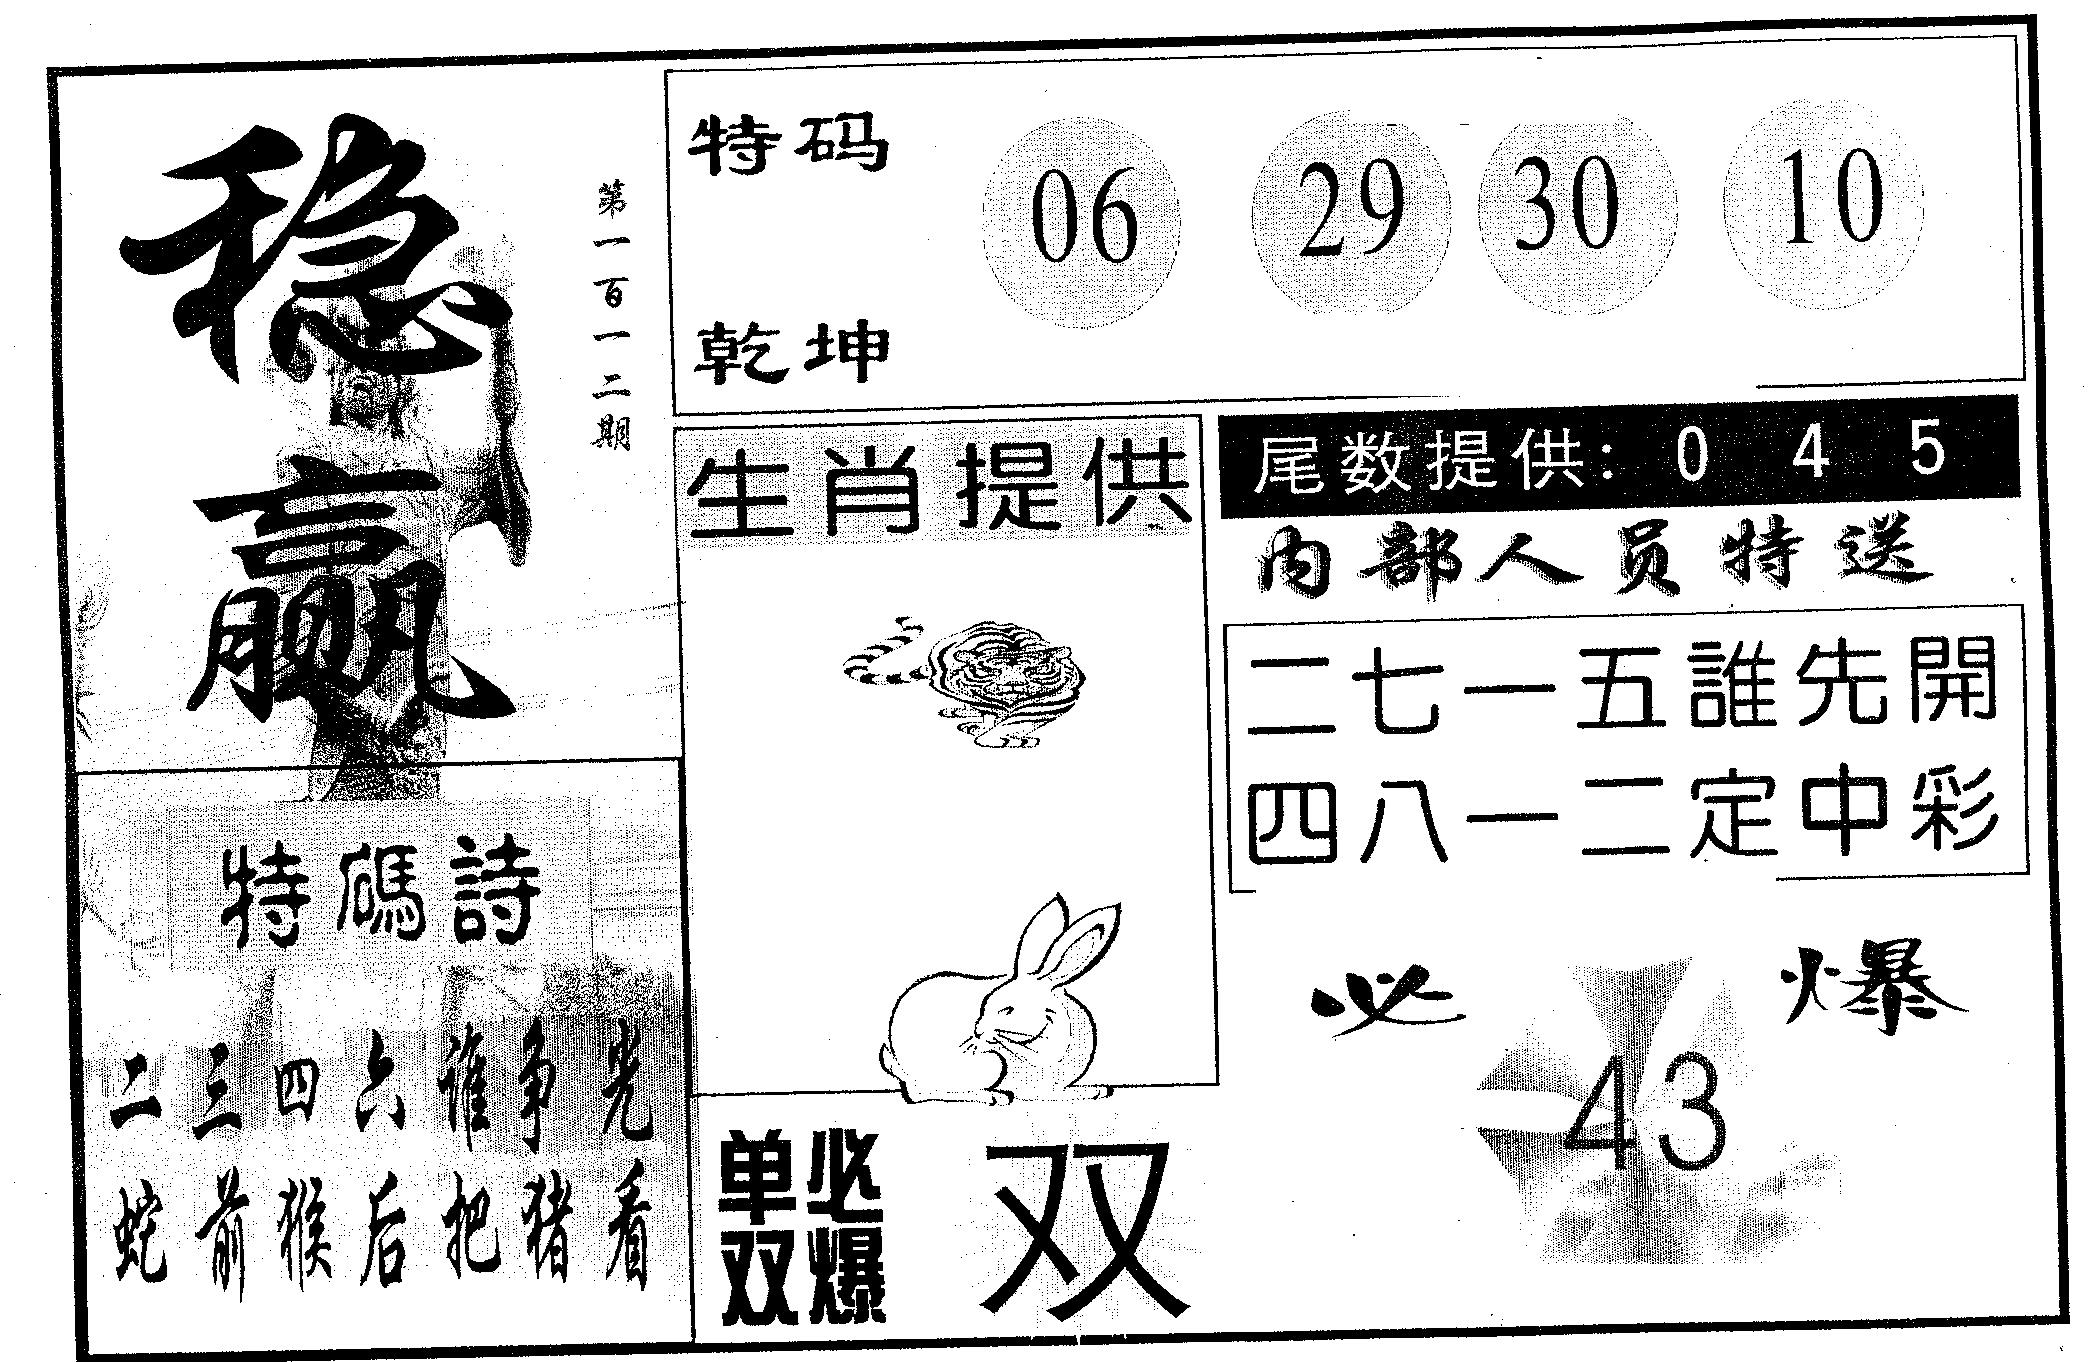 稳赢
第一百一十二期
特码
乾坤
06 29 30 10
生肖提供
尾数提供: 0 4 5
内部人员特送
二七一五誰先開
四八一二定中彩
特碼詩
二三四六谁争先
蛇前猴后把猪看
单双必爆
双
必爆
43